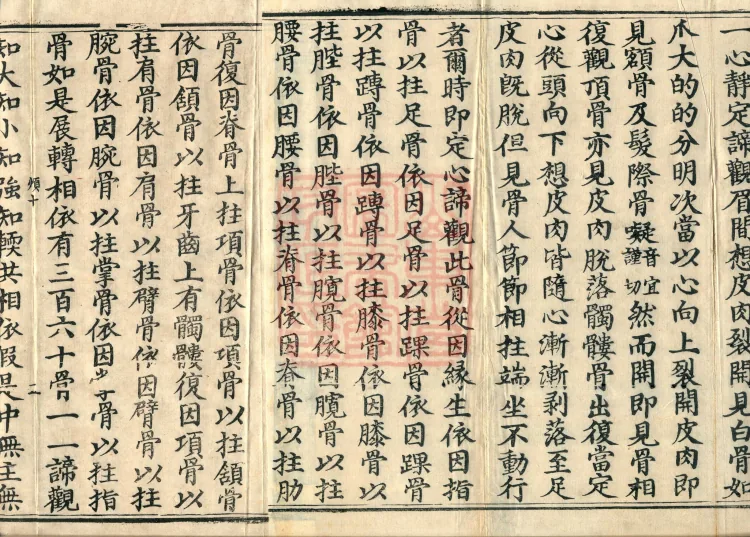 一心靜定諦觀眉間想皮肉裂開見白骨如
爪大的的分明次當以心向上裂開皮肉即
見額骨及髮際骨礙音宜謹切然而開即見骨相
復觀頂骨亦見皮肉脫落髑髏骨出復當定
心從頭向下想皮肉皆隨心漸漸剥落至足
皮肉旣脫但見骨人節節相拄端坐不動行
者爾時即定心諦觀此骨從因緣生依因指
骨以拄足骨依因足骨以拄踝骨依因踝骨
以拄䏝骨依因䏝骨以拄膝骨依因膝骨以
拄䏶骨依因䏶骨以拄臗骨依因臗骨以拄
腰骨依因腰骨以拄脊骨依因脊骨以拄肋
骨復因脊骨上拄項骨依因項骨以拄頷骨
依因頷骨以拄牙齒上有髑髏復因項骨以
拄肩骨依因肩骨以拄臂骨依因臂骨以拄
腕骨依因腕骨以拄掌骨依因掌骨以拄指
骨如是展轉相依有三百六十骨一一諦觀
煩十 二
知大知小知強知輭共相依假是中無主無